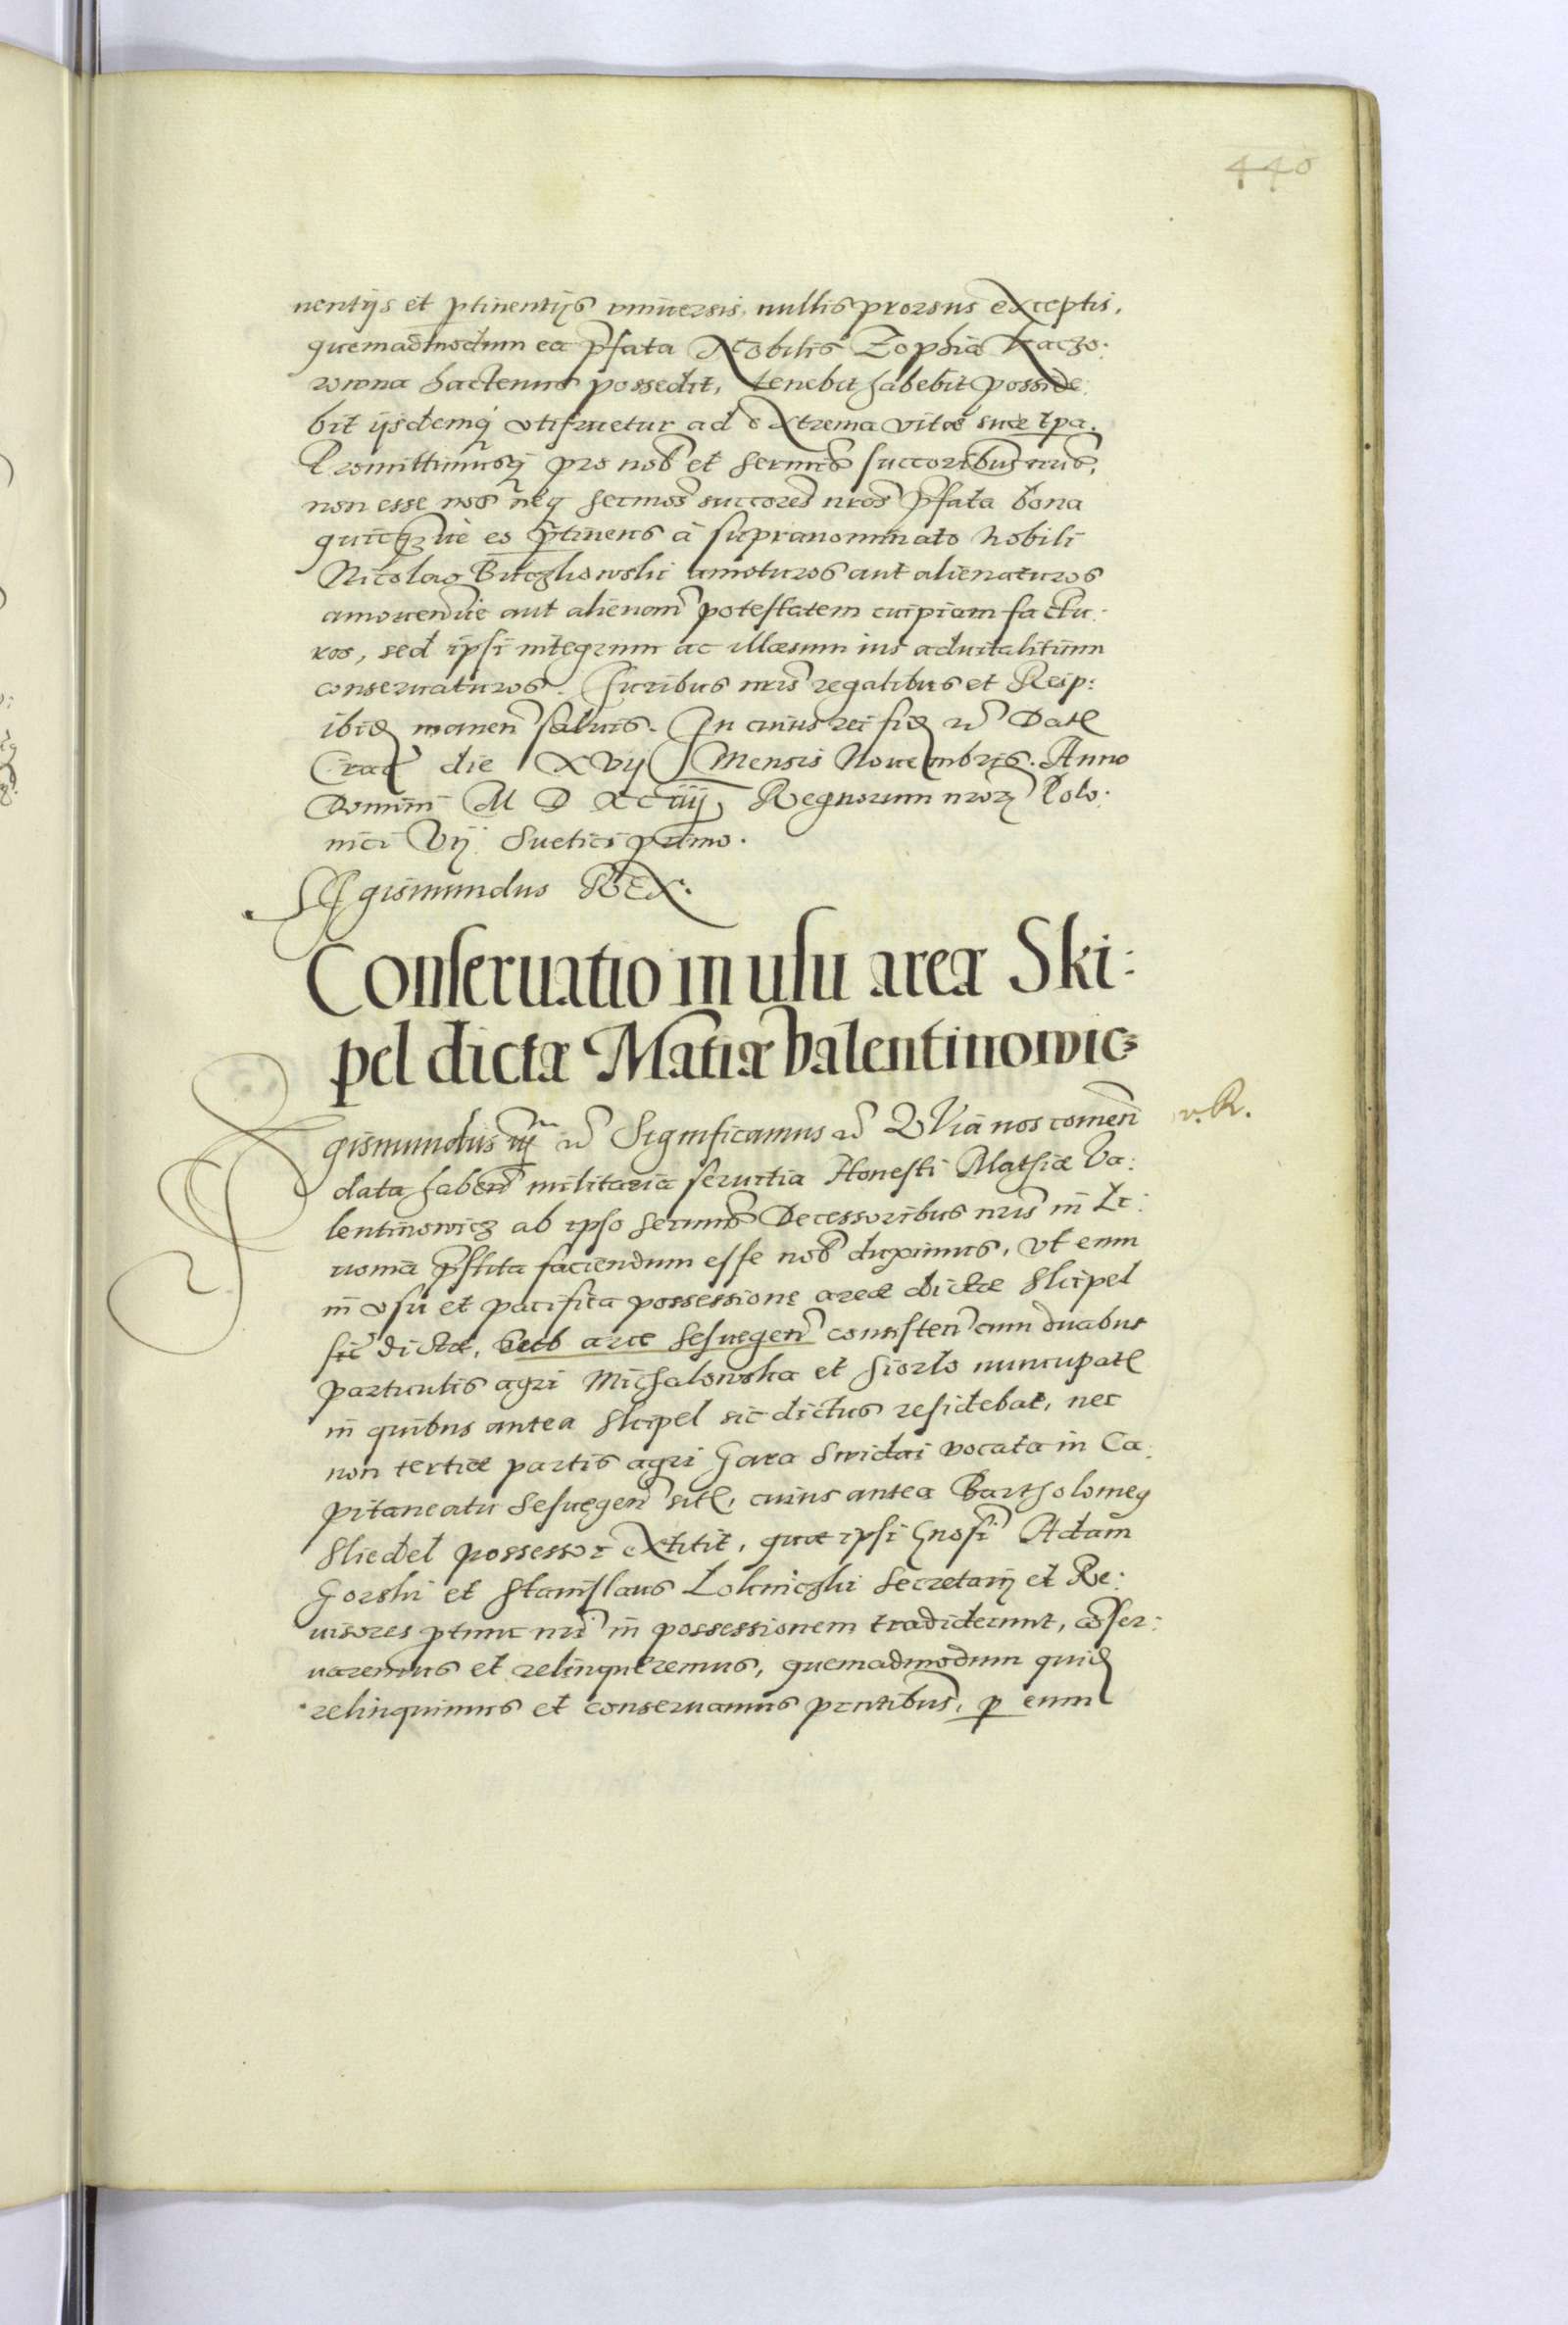 440
nentijs et ptinentijs vniuersis, nullis prorsus exceptis,
quemadmodum ea pfata Nobilis Zophia Kaczo:
rowna hactenus possedit, tenebit habebit posside:
bit ijsdemq vtifruetur ad extrema vitæ suæ tpa.
Promittimusq pro nob et sermis succoribus nris,
non esse nos neq sermos succores nros pfata bona
quicqve eo ptinens à supranominato Nobili
Nicolao amoturos aut alienaturos
amouendive aut alienam potestatem cuipiam factu:
ros, sed ipsi integrum ac illæsum ius aduitalitium
conseruaturos. Iuribus nris regalibus et Reip:
ibid manen saluis. In cuius rei fid Dat
Crac die XVij Mensis Nouembris. Anno
Domini M D XCiiij, Regnorum nror Polo:
nici Vij Suetici primo.
Sigismundus REX.
Conseruatio in usu areæ Ski:
pel dictæ Matiæ Valentinowicz
Sigismundus iij Significamus QVia nos comen
data haben militaria seruitia Honesti Mathiæ Va:
lentinowicz ab ipso sermis Decessoribus nris in Li:
uonia pstita faciendum esse nob duximus, vt eum
in vsu et pacifica possessione areæ dictæ Skipel
sic dictæ, sub arce Sesuegen consisten cum duabus
particulis agri Michalowska et Siorlo nuncupat
in quibus antea Skipel sic dictus residebat, nec
non tertiæ partis agri Gara Swidri vocata in Ca:
pitaneatu Sesuegen sit, cuius antea Bartholomeq
Sliedel possessor extitit, quæ ipsi Gnosi Adam
Gorski et Stanislaus Secretarij et Re:
uisores ptunc nri in possessionem tradiderunt, coser:
uaremus et relinqueremus, quemadmodum quid
relinquimus et conseruamus pntibus, p eum
v. R.